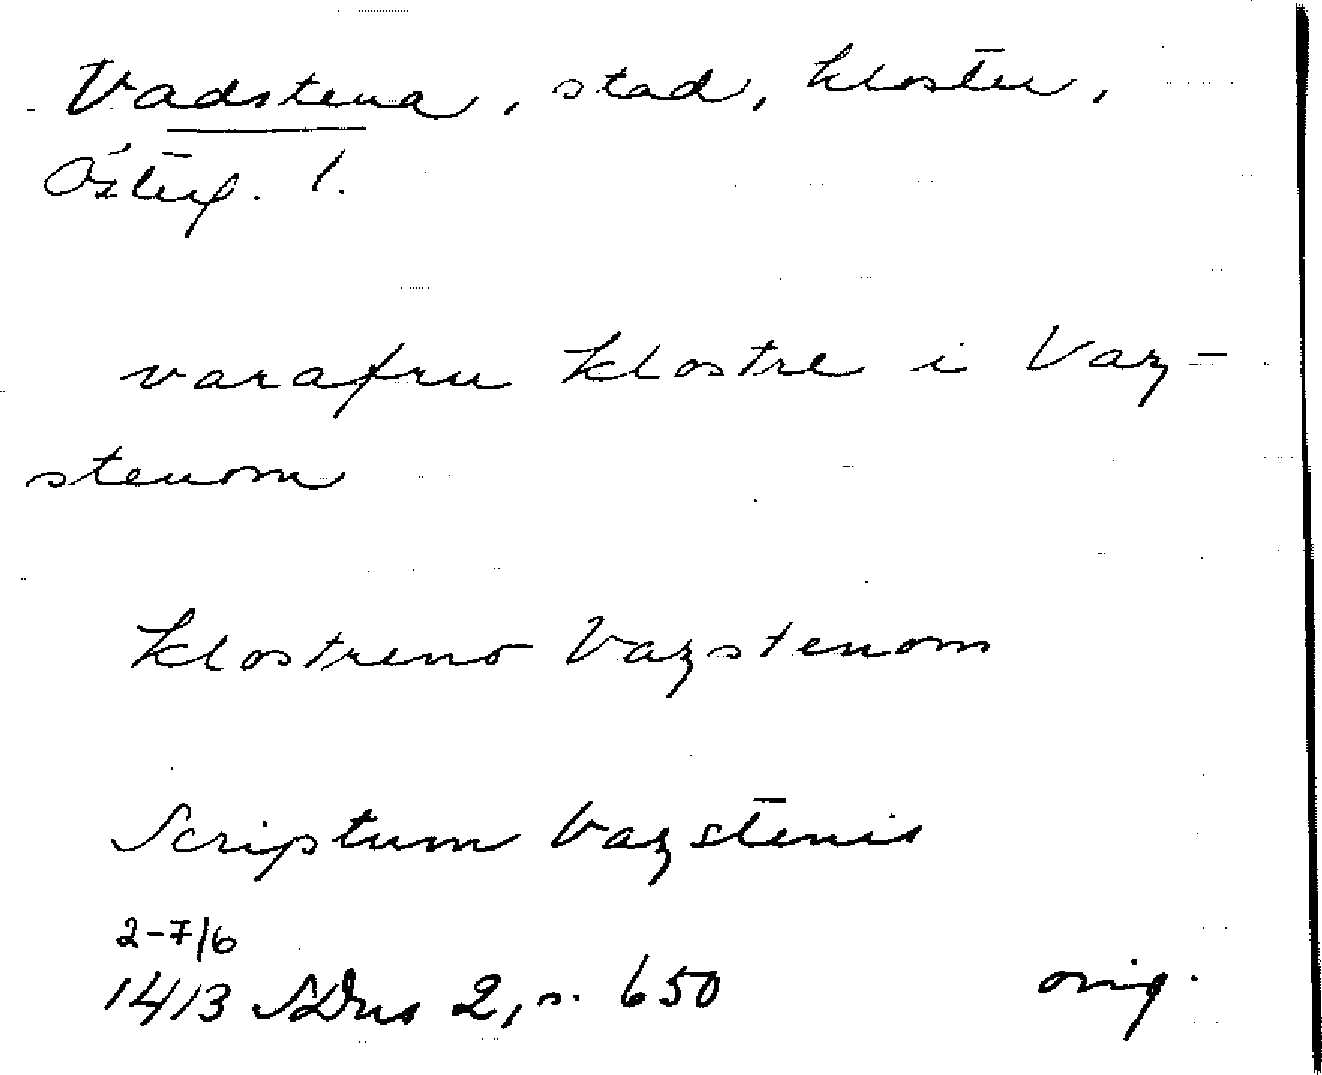 Vadstena, stad, kloster,
Österg. l.
varafru klostre i Vaz-
stenom
klostreno Vazstenom
Scriptum Vazstenis
2-7/6
1413 SDns 2, s. 650 orig.